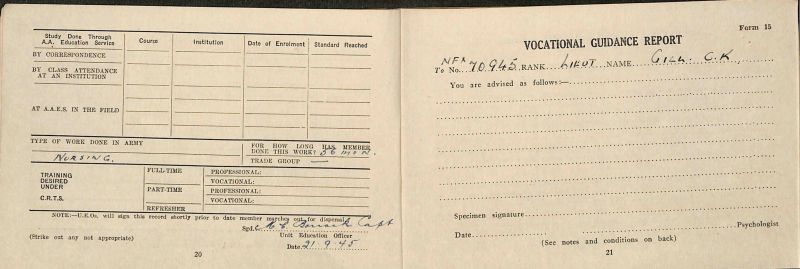 Study Done Through
A.A. Education Service
Course
Institution
Date of Enrolment
Standard Reached
BY CORRESPONDENCE
BY CLASS ATTENDANCE
AT AN INSTITUTION
AT A.A.E.S. IN THE FIELD
TYPE OF WORK DONE IN ARMY
NURSING.
FOR HOW LONG HAS MEMBER
DONE THIS WORK? 56 MON.
TRADE GROUP —
TRAINING
DESIRED
UNDER
C.R.T.S.
FULL-TIME
PROFESSIONAL:
VOCATIONAL:
PART-TIME
PROFESSIONAL:
VOCATIONAL:
REFRESHER
NOTE:—U.E.Os. will sign this record shortly prior to date member marches out for dispersal.
Sgd. Capt
Unit Education Officer
(Strike out any not appropriate)
Date 21.9.45
20
Form 15
VOCATIONAL GUIDANCE REPORT
To No. NFX 70945 RANK LIEUT NAME GILL. C.K
You are advised as follows:—
Specimen signature
Date
Psychologist
(See notes and conditions on back)
21